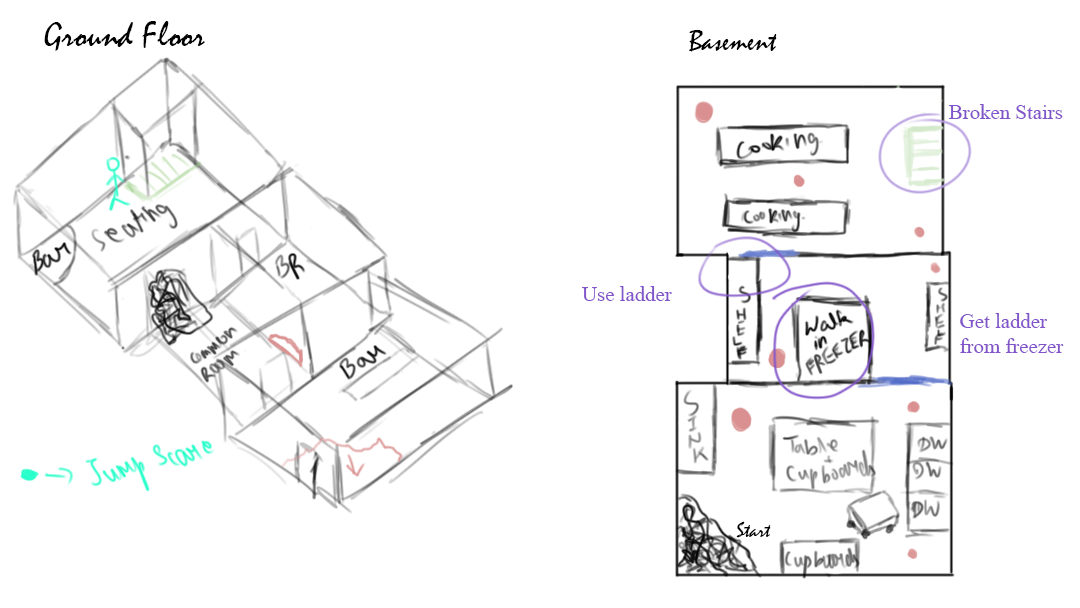 Ground Floor
Bar
Seating
BR
Common
Room
Bar
Jump Scare
Basement
Broken Stairs
Cooking.
Cooking.
Use ladder
SHELF
Walk
in
FREEZER
SHELF
Get ladder
from freezer
SINK
Table
+
Cupboards
DW
DW
DW
Start
Cupboards